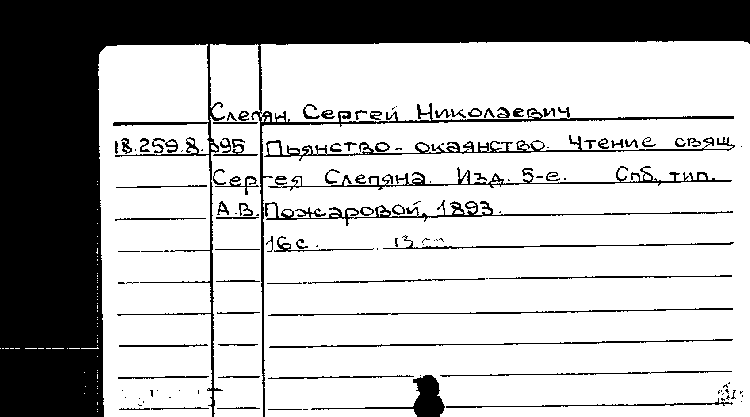 Слепян, Сергей Николаевич
18.259.8.395 Пьянство-окаянство. Чтение свящ.
Сергея Слепяна. Изд. 5-е. Спб., тип.
А.В. Пожаровой, 1893.
16 с. 13 см.